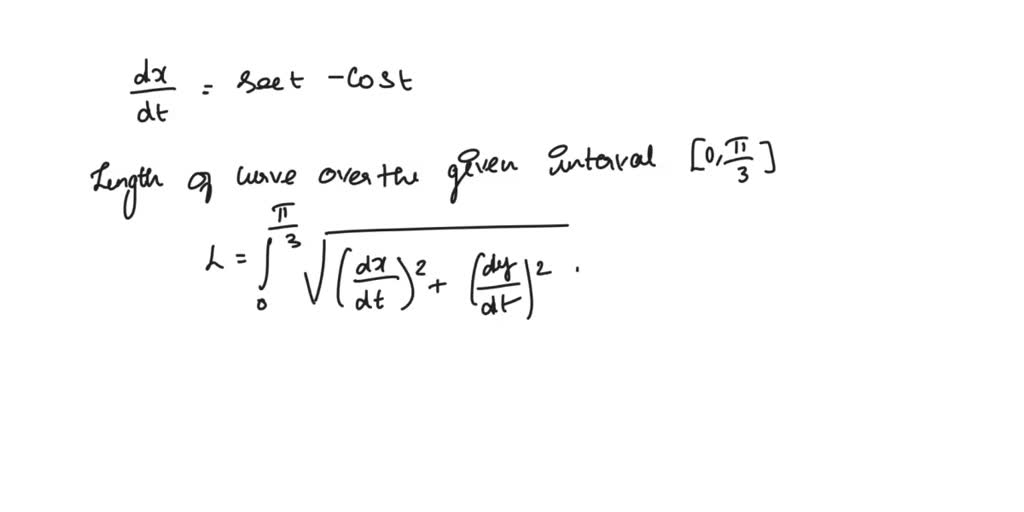 dx/dt = sect - cost
Length of curve over the given interval [0, π/3]
L = ∫₀^(π/3) √((dx/dt)² + (dy/dt)²) .